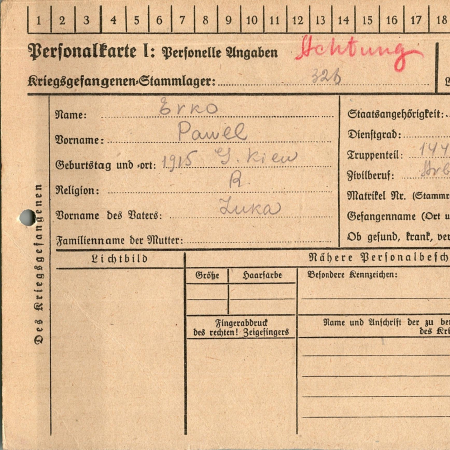 1 2 3 4 5 6 7 8 9 10 11 12 13 14 15 16 17 18
Personalkarte I: Personelle Angaben Achtung
Kriegsgefangenen-Stammlager: 326
Des Kriegsgefangenen
Name: Erko
Vorname: Pawel
Geburtstag und -ort: 1915 G. Kiew
Religion: R.
Vorname des Vaters: Luka
Familienname der Mutter:
Staatsangehörigkeit:
Dienstgrad:
Truppenteil: 144
Zivilberuf: Arb
Matrikel Nr. (Stammr
Gefangenname (Ort u
Ob gesund, krank, ver
Lichtbild
Nähere Personalbesch
Größe Haarfarbe Besondere Kennzeichen:
Fingerabdruck
des rechten! Zeigefingers
Name und Anschrift der zu be
des Kri